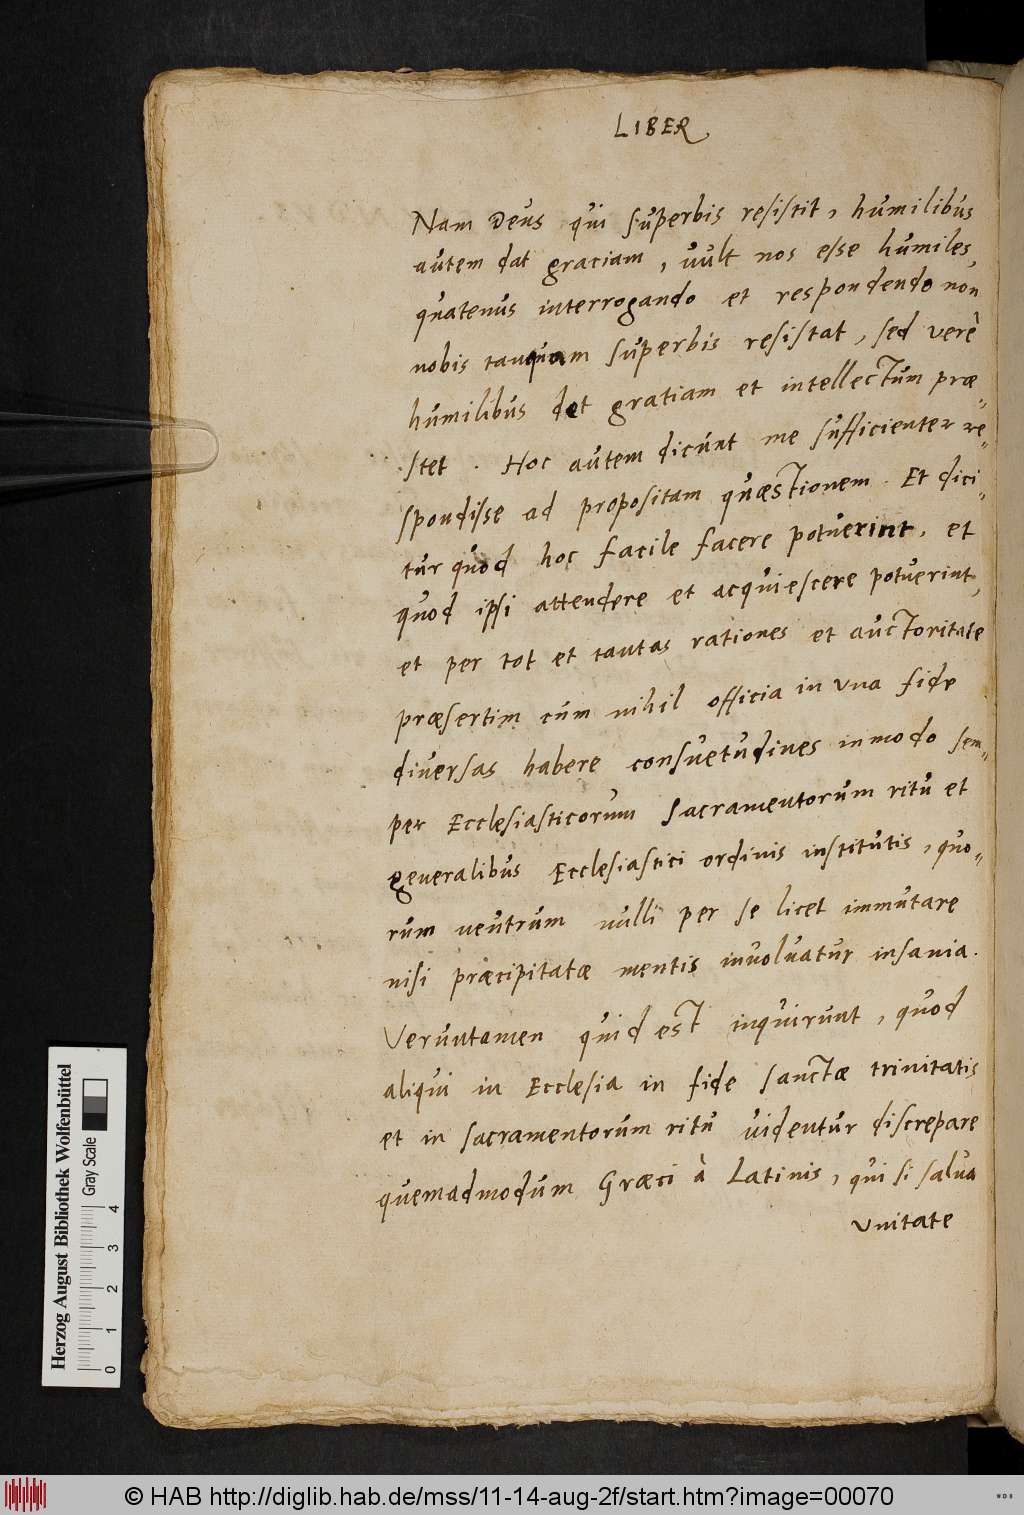 LIBER
Nam Deus qui superbis resistit, humilibus
autem dat graciam, vult nos esse humiles,
quatenus interrogando et respondendo non
nobis tanquam superbis resistat, sed verè
humilibus det gratiam et intellectum præ„
stet. Hoc autem dicunt me sufficienter re„
spondisse ad propositam quæstionem. Et dici„
tur quod hoc facile facere potuerint, et
quod ipsi attendere et acquiescere potuerint,
et per tot et tantas rationes et auctoritate
præsertim cùm nihil officia in una fide
diversas habere consuetudines in modo sem„
per Ecclesiasticorum Sacramentorum ritu et
generalibus Ecclesiastici ordinis institutis, quo„
rum neutrum nulli per se licet immutare
nisi præcipitatæ mentis involvatur insania.
Veruntamen quid est inquirunt, quod
aliqui in Ecclesia in fide sanctæ trinitatis
et in sacramentorum ritu videntur discrepare
quemadmodum Græci à Latinis, qui si salva
unitate
Herzog August Bibliothek Wolfenbüttel
Gray Scale
0 1 2 3 4
© HAB http://diglib.hab.de/mss/11-14-aug-2f/start.htm?image=00070